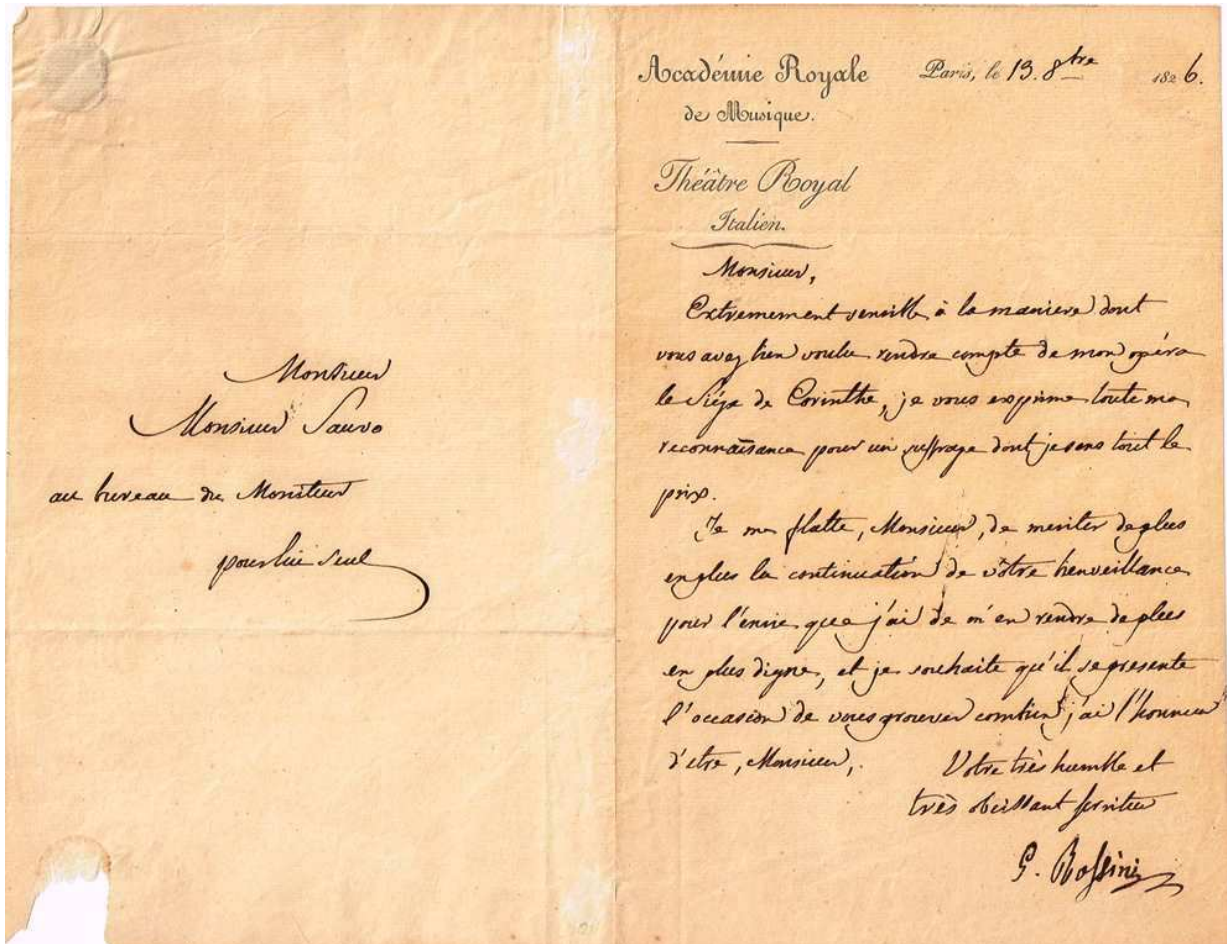 Monsieur
Monsieur Sauvo
au bureau du Moniteur
pour lui seul
Académie Royale
de Musique.
Paris, le 13. 8bre 1826.
Théâtre Royal
Italien.
Monsieur,
Extremement sensible à la maniere dont
vous avez bien voulu rendre compte de mon opéra
le Siége de Corinthe, je vous exprime toute ma
reconnaisance pour un suffrage dont je sens tout le
prix.
Je me flatte, Monsieur, de meriter de plus
en plus la continuation de vôtre bienveillance
pour l'envie que j'ai de m'en rendre de plus
en plus digne, et je souhaite qu'il se presente
l'occasion de vous prouver combien j'ai l'honneur
d'etre, Monsieur,
Votre très humble et
très obeissant serviteur
G. Rossini